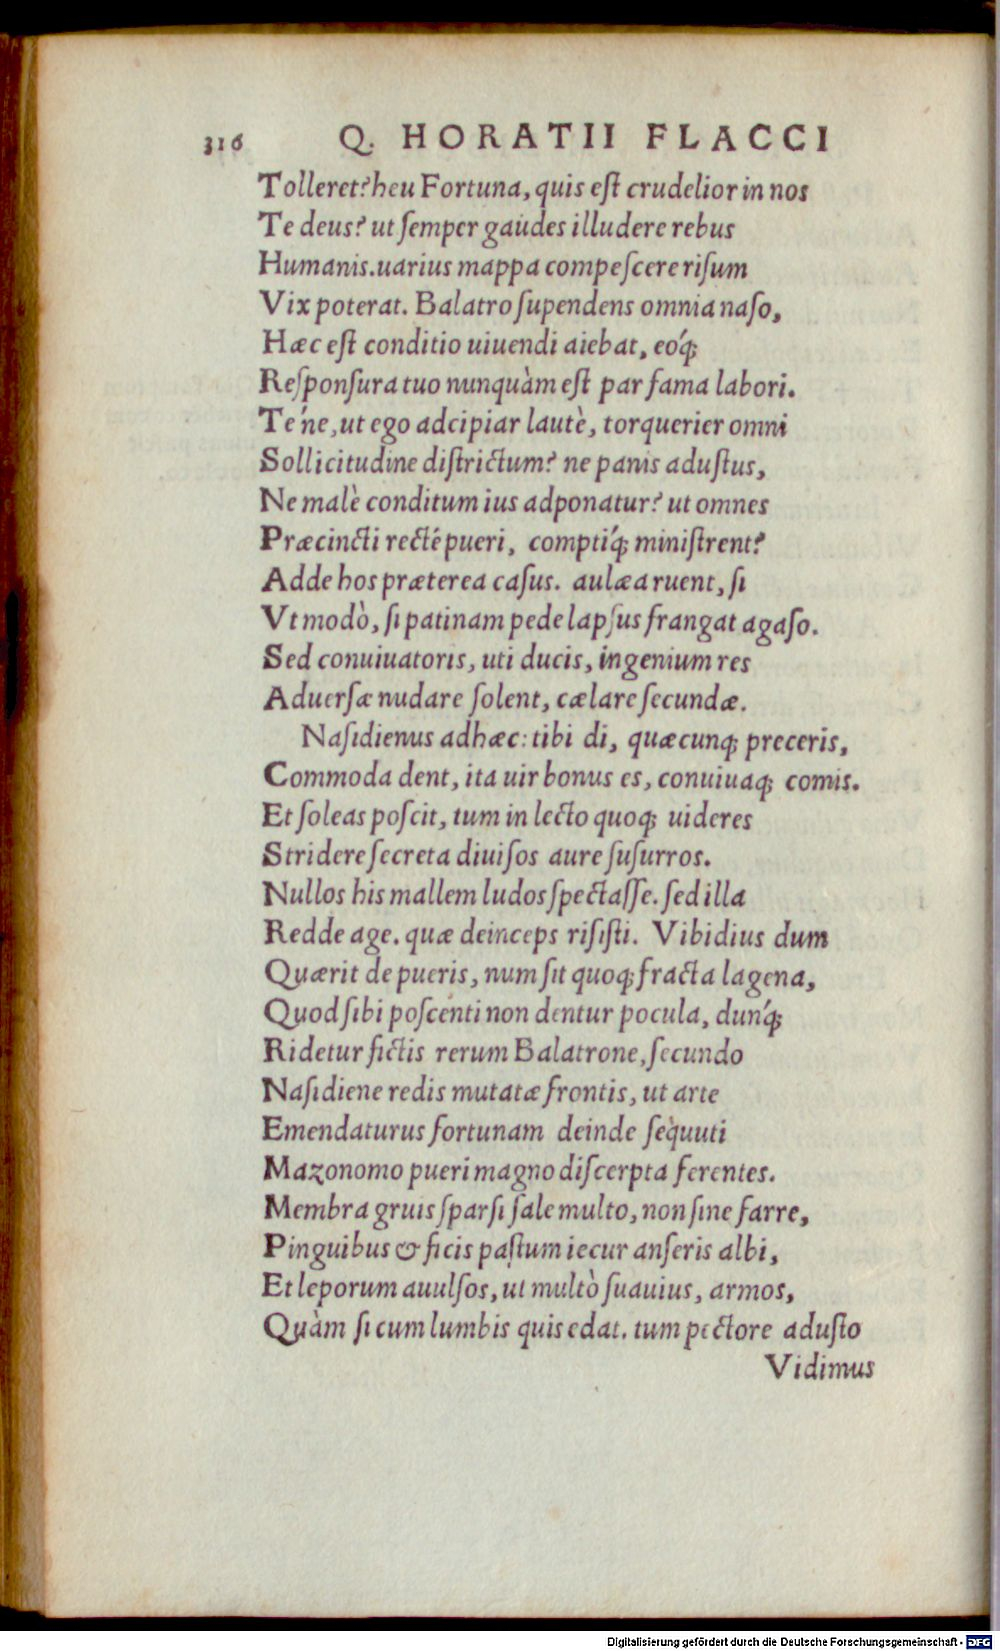 316 Q. HORATII FLACCI
Tolleret? heu Fortuna, quis eſt crudelior in nos
Te deus? ut ſemper gaudes illudere rebus
Humanis. uarius mappa compeſcere riſum
Vix poterat. Balatro ſupendens omnia naſo,
Hæc eſt conditio uiuendi aiebat, eoq́;
Reſponſura tuo nunquàm eſt par fama labori.
Te'ne, ut ego adcipiar lautè, torquerier omni
Sollicitudine diſtrictum? ne panis aduſtus,
Ne malè conditum ius adponatur? ut omnes
Præcincti recté pueri, comptiq́; miniſtrent?
Adde hos præterea caſus. aulæa ruent, ſi
Vt modò, ſi patinam pede lapſus frangat agaſo.
Sed conuiuatoris, uti ducis, ingenium res
Aduerſæ nudare ſolent, cælare ſecundæ.
Naſidienus ad hæc: tibi di, quæcunq; preceris,
Commoda dent, ita uir bonus es, conuiuaq; comis.
Et ſoleas poſcit, tum in lecto quoq; uideres
Stridere ſecreta diuiſos aure ſuſurros.
Nullos his mallem ludos ſpectaſſe. ſed illa
Redde age. quæ deinceps riſiſti. Vibidius dum
Quærit de pueris, num ſit quoq; fracta lagena,
Quod ſibi poſcenti non dentur pocula, dunq́;
Ridetur fictis rerum Balatrone, ſecundo
Naſidiene redis mutatæ frontis, ut arte
Emendaturus fortunam deinde ſequuti
Mazonomo pueri magno diſcerpta ferentes.
Membra gruis ſparſi ſale multo, non ſine farre,
Pinguibus & ficis paſtum iecur anſeris albi,
Et leporum auulſos, ut multò ſuauius, armos,
Quàm ſi cum lumbis quis edat. tum pectore aduſto
Vidimus
Digitalisierung gefördert durch die Deutsche Forschungsgemeinschaft - DFG